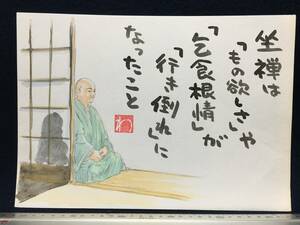 坐禅は
「もの欲しさ」や
「乞食根情」が
「行き倒れ」に
なったこと